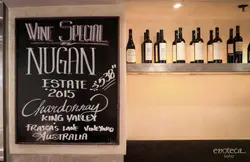 Wine Special
NUGAN
ESTATE
2015
Chardonnay
KING VALLEY
FRASCA'S LANE VINEYARD
AUSTRALIA
enoteca